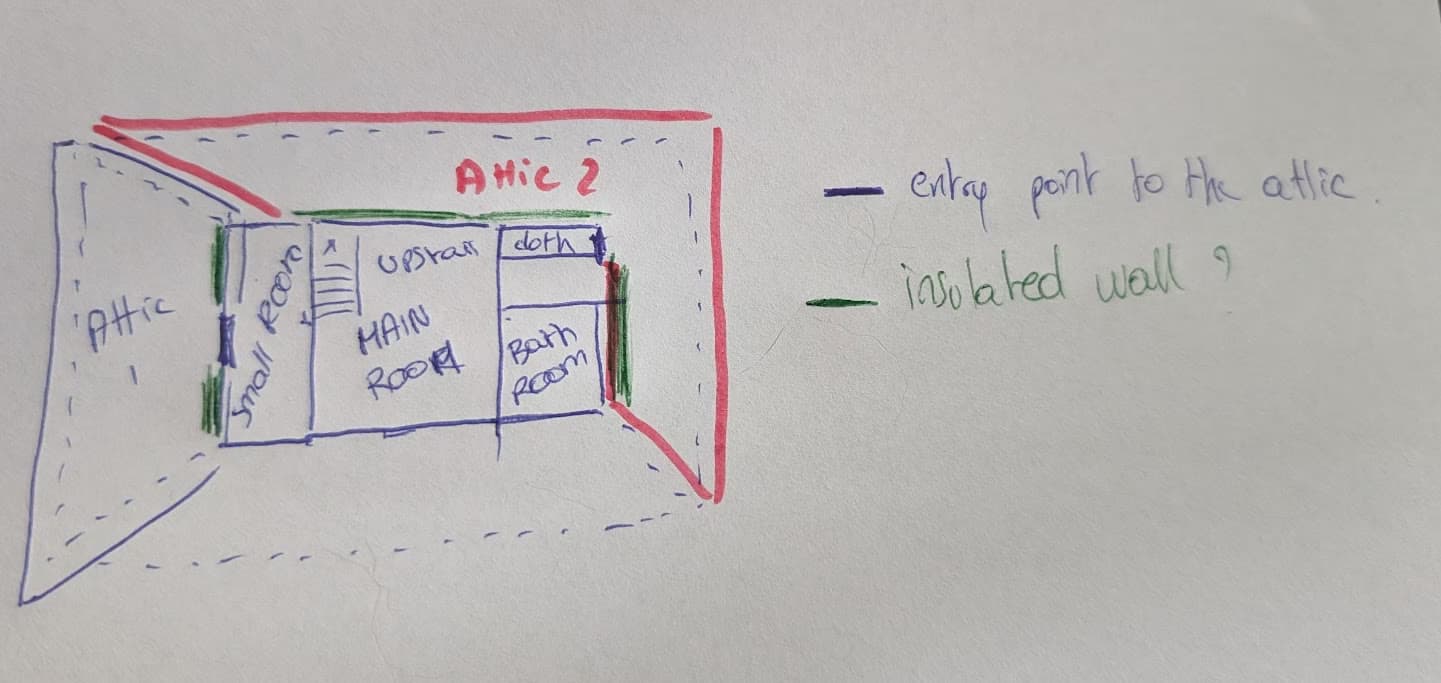 Attic 2
UPStair
cloth
Small Room
Attic
1
MAIN
ROOM
Bath
Room
entry point to the attic.
insolated wall ?